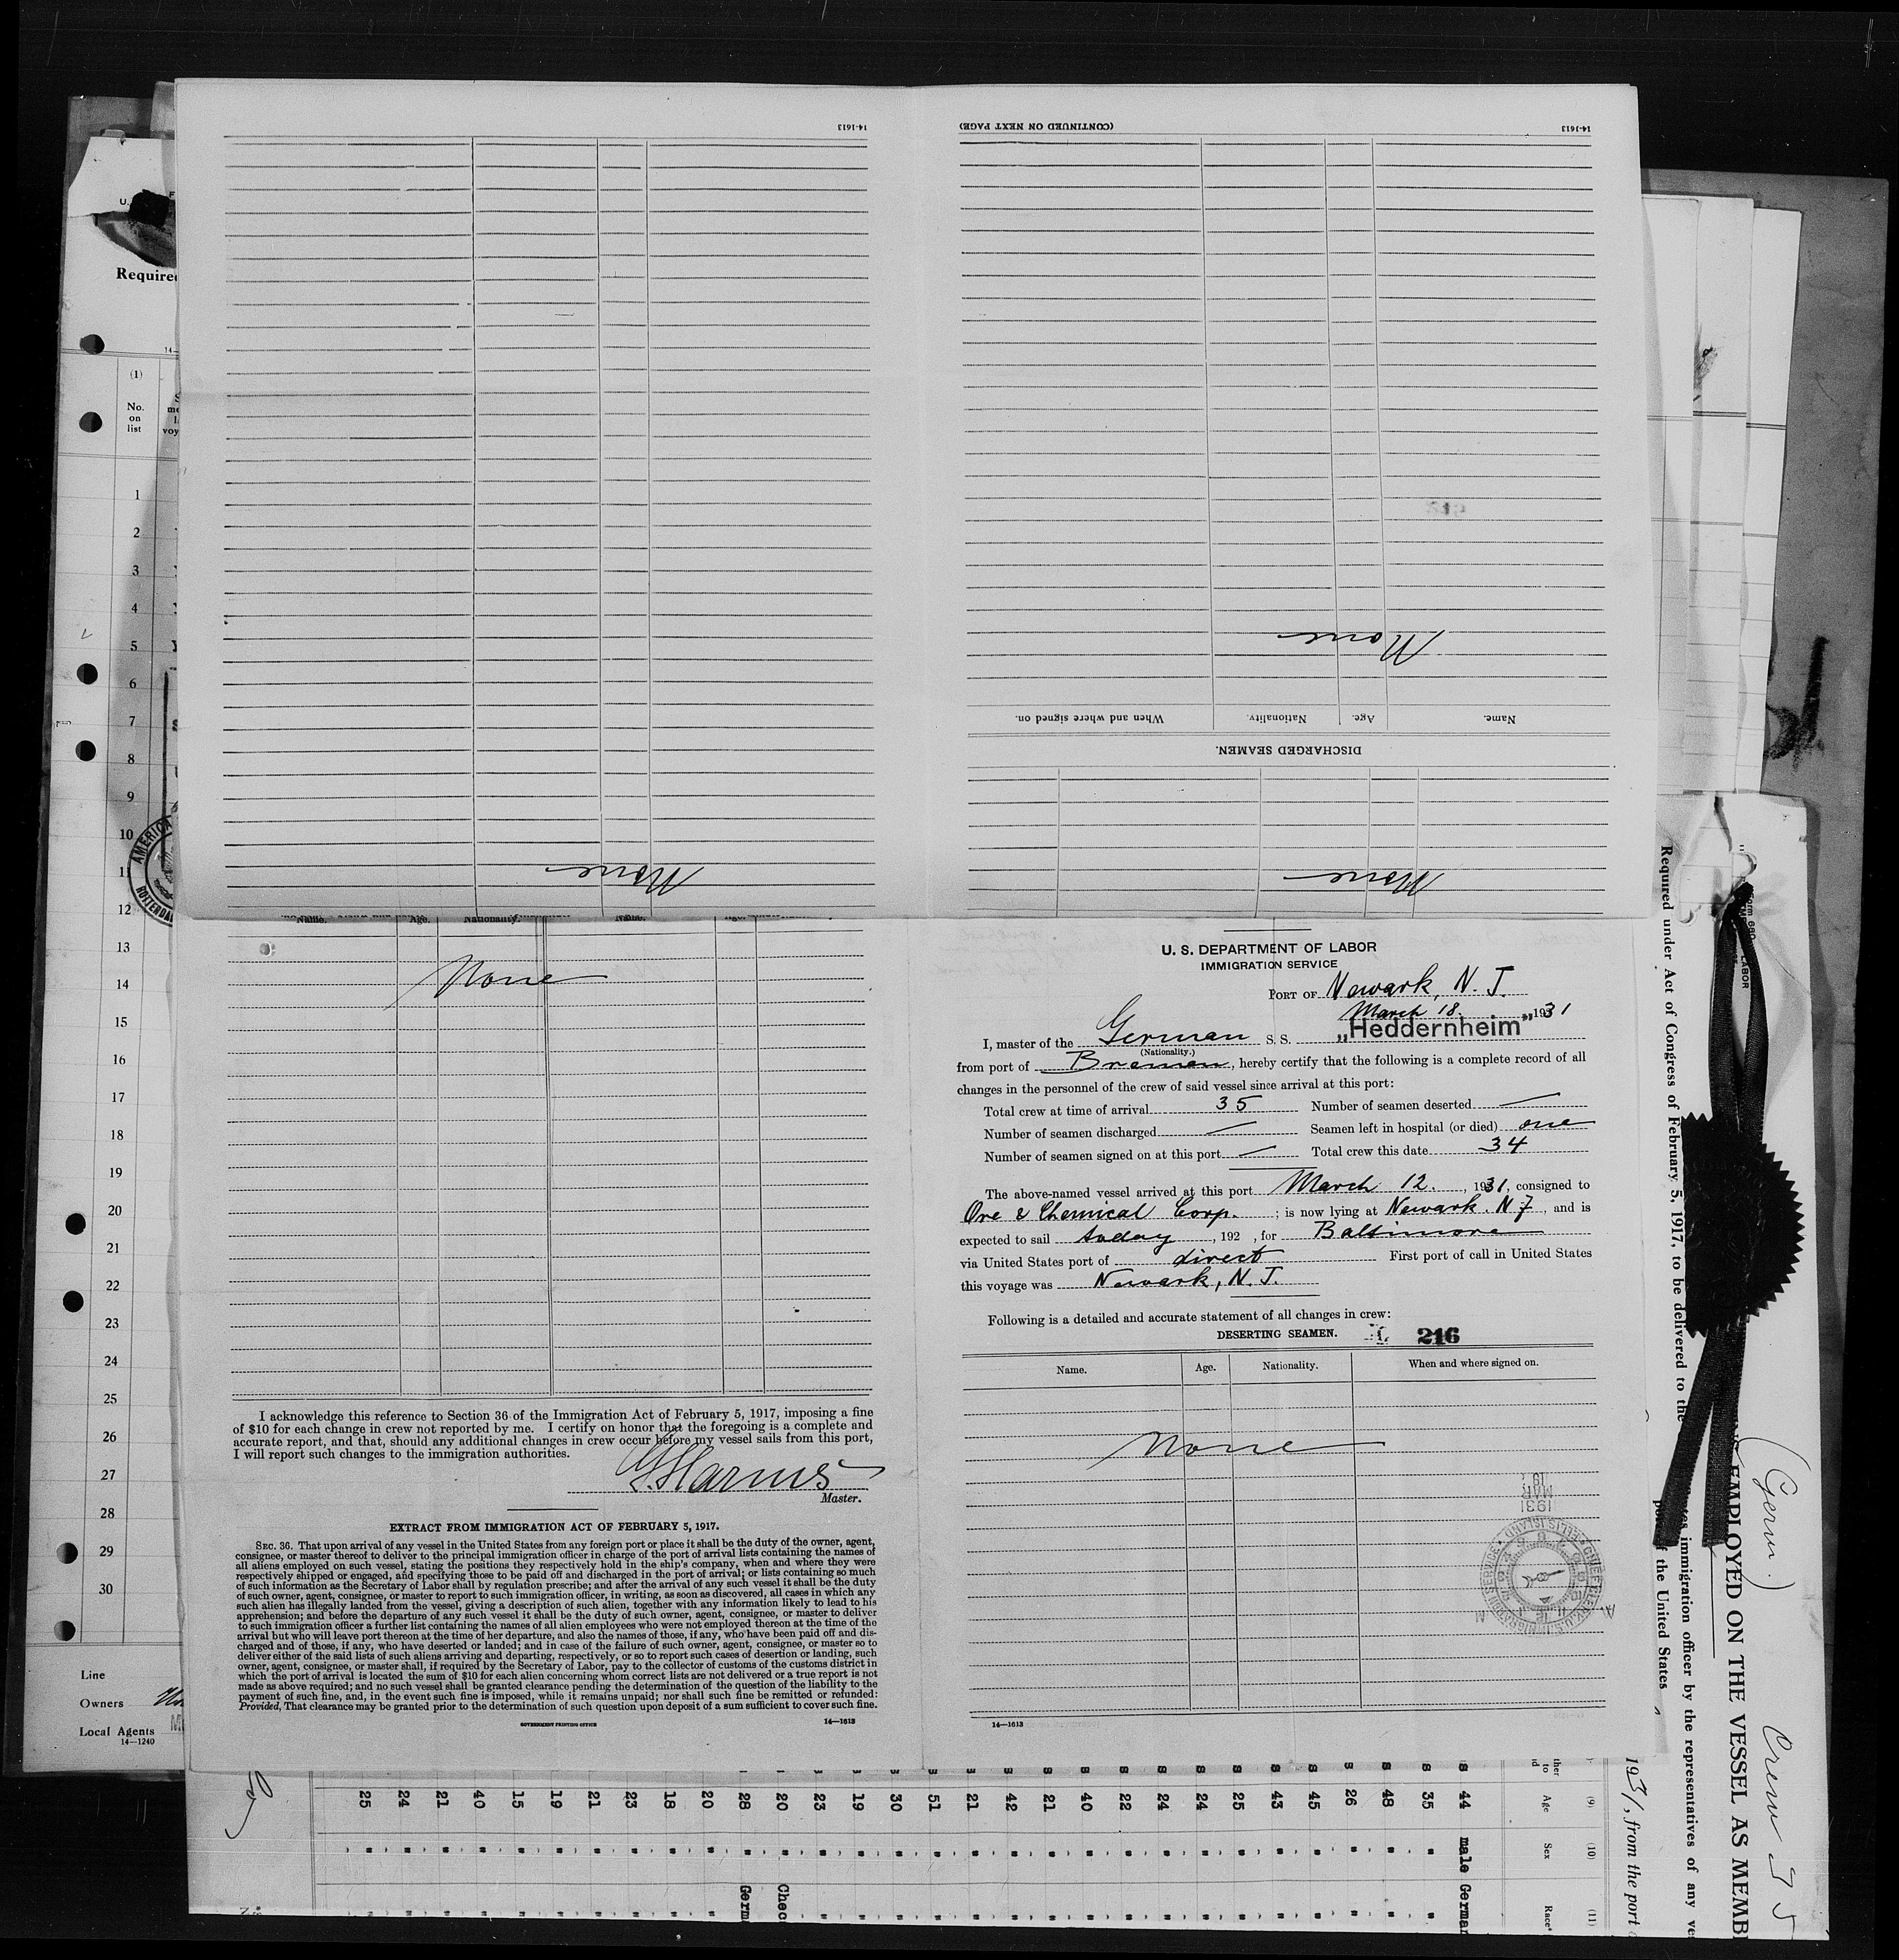 14-1613
(CONTINUED ON NEXT PAGE)
14-1613
None
When and where signed on.
Nationality.
Age.
Name.
DISCHARGED SEAMEN.
None
None
Name.
Age.
Nationality.
Name.
None
I acknowledge this reference to Section 36 of the Immigration Act of February 5, 1917, imposing a fine
of $10 for each change in crew not reported by me. I certify on honor that the foregoing is a complete and
accurate report, and that, should any additional changes in crew occur before my vessel sails from this port,
I will report such changes to the immigration authorities.
Harms
Master.
EXTRACT FROM IMMIGRATION ACT OF FEBRUARY 5, 1917.
SEC. 36. That upon arrival of any vessel in the United States from any foreign port or place it shall be the duty of the owner, agent,
consignee, or master thereof to deliver to the principal immigration officer in charge of the port of arrival lists containing the names of
all aliens employed on such vessel, stating the positions they respectively hold in the ship's company, when and where they were
respectively shipped or engaged, and specifying those to be paid off and discharged in the port of arrival; or lists containing so much
of such information as the Secretary of Labor shall by regulation prescribe; and after the arrival of any such vessel it shall be the duty
of such owner, agent, consignee, or master to report to such immigration officer, in writing, as soon as discovered, all cases in which any
such alien has illegally landed from the vessel, giving a description of such alien, together with any information likely to lead to his
apprehension; and before the departure of any such vessel it shall be the duty of such owner, agent, consignee, or master to deliver
to such immigration officer a further list containing the names of all alien employees who were not employed thereon at the time of the
arrival but who will leave port thereon at the time of her departure, and also the names of those, if any, who have been paid off and dis-
charged and of those, if any, who have deserted or landed; and in case of the failure of such owner, agent, consignee, or master so to
deliver either of the said lists of such aliens arriving and departing, respectively, or so to report such cases of desertion or landing, such
owner, agent, consignee, or master shall, if required by the Secretary of Labor, pay to the collector of customs of the customs district in
which the port of arrival is located the sum of $10 for each alien concerning whom correct lists are not delivered or a true report is not
made as above required; and no such vessel shall be granted clearance pending the determination of the question of the liability to the
payment of such fine, and, in the event such fine is imposed, while it remains unpaid; nor shall such fine be remitted or refunded:
Provided, That clearance may be granted prior to the determination of such question upon deposit of a sum sufficient to cover such fine.
GOVERNMENT PRINTING OFFICE
14—1613
U. S. DEPARTMENT OF LABOR
IMMIGRATION SERVICE
PORT OF Newark, N. J.
March 18. , 1931
I, master of the German S. S. „Heddernheim"
(Nationality.)
from port of Bremen, hereby certify that the following is a complete record of all
changes in the personnel of the crew of said vessel since arrival at this port:
Total crew at time of arrival 35 Number of seamen deserted —
Number of seamen discharged — Seamen left in hospital (or died) one
Number of seamen signed on at this port — Total crew this date 34
The above-named vessel arrived at this port March 12. , 1931, consigned to
Ore & Chemical Corp. ; is now lying at Newark. N J, and is
expected to sail today, 192 , for Baltimore
via United States port of direct First port of call in United States
this voyage was Newark, N. J.
Following is a detailed and accurate statement of all changes in crew:
DESERTING SEAMEN. 216
Name. Age. Nationality. When and where signed on.
None
19
MAR
1931
CHIEF CLERK U.S. IMMIGRATION SERVICE
ELLIS ISLAND
14—1613
Required
(1)
No.
on
list
1
2
3
4
5
6
7
8
9
10
11
12
13
14
15
16
17
18
19
20
21
22
23
24
25
26
27
28
29
30
AMERICA
ROTTERDA
Line
Owners
Local Agents
14—1240
(Germ.) Crew 35
EMPLOYED ON THE VESSEL AS MEMB
Required under Act of Congress of February 5, 1917, to be delivered to the
immigration officer by the representatives of any ve
the United States
1931, from the port
(9)
Age
44
35
48
26
45
43
25
24
24
22
40
21
42
21
51
30
19
23
20
28
20
18
23
21
19
15
40
21
24
25
(10)
Sex
male
(11)
Race
German
Chec
Germ